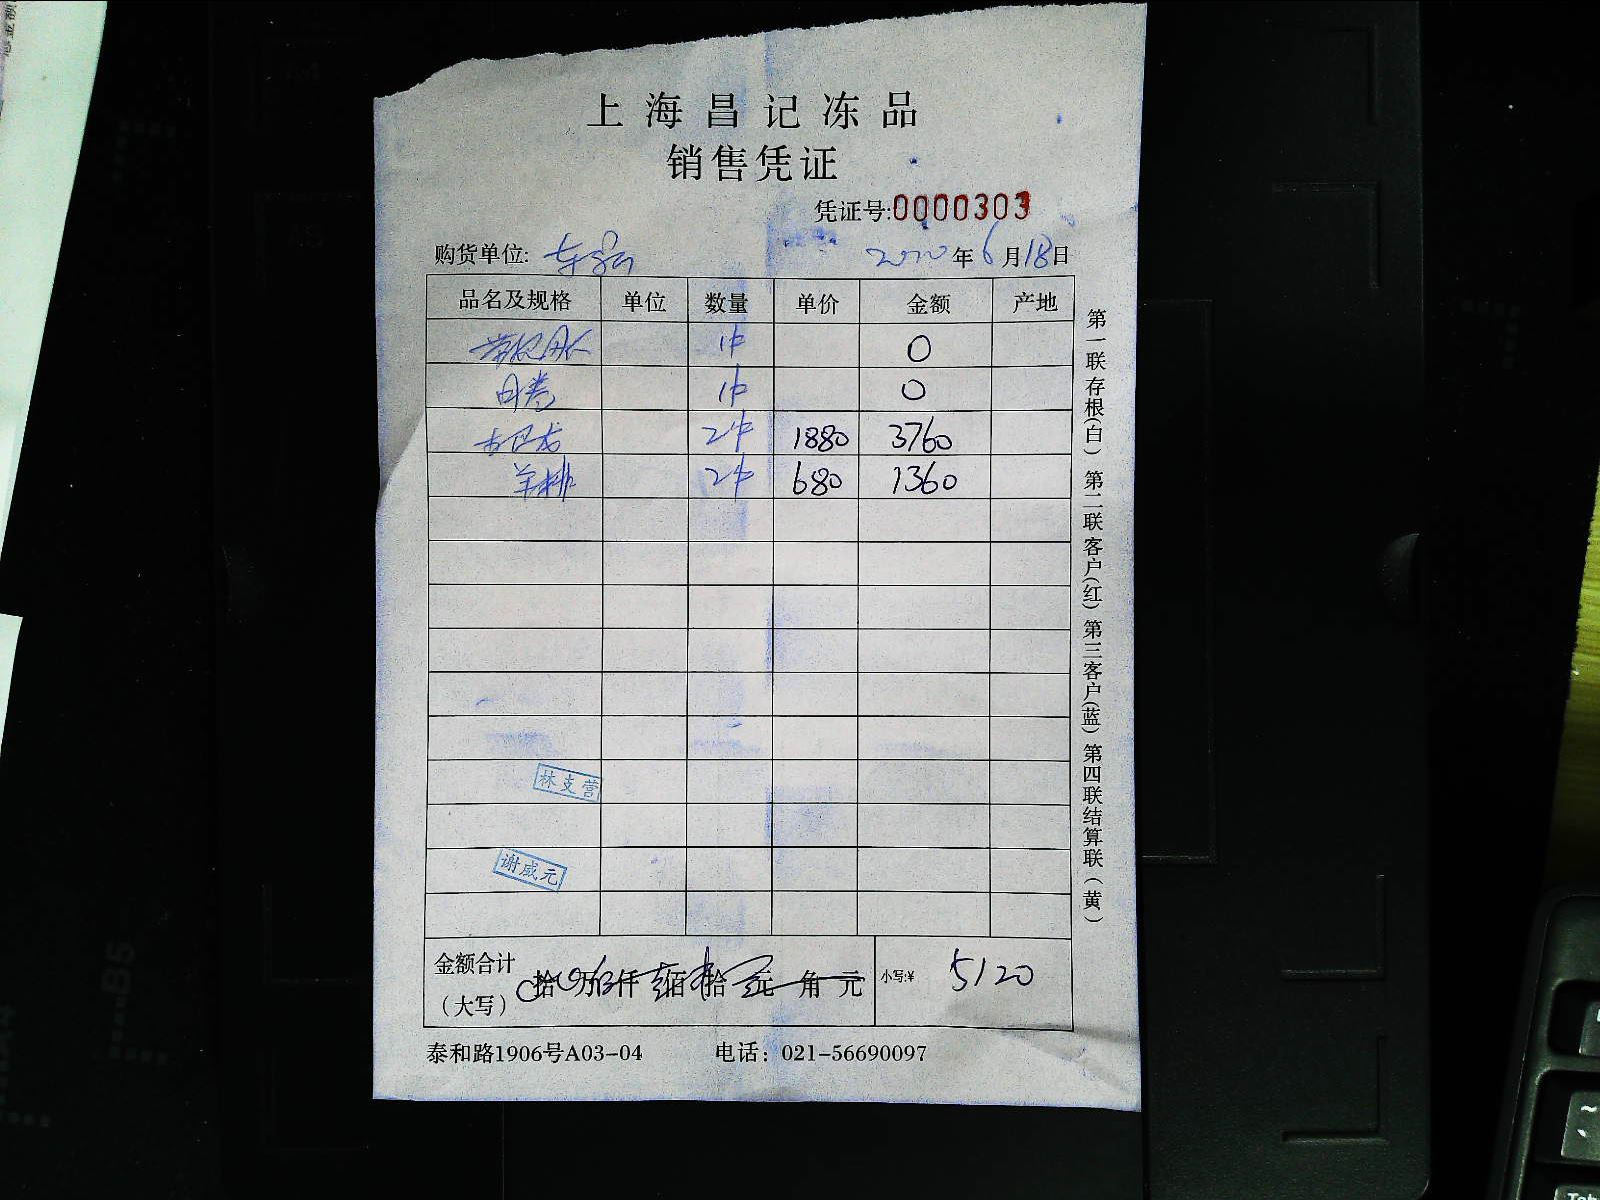 上海昌记冻品
销售凭证
凭证号:0000303
购货单位: 2020年6月18日
品名及规格 单位 数量 单价 金额 产地
1件 0
1件 0
2件 1880 3760
羊排 2件 680 1360
林支营
谢咸元
金额合计
(大写) 拾 万 仟 佰 拾 元 角 元 小写:¥ 5120
泰和路1906号A03-04 电话: 021-56690097
第一联存根(白) 第二联客户(红) 第三客户(蓝) 第四联结算联(黄)